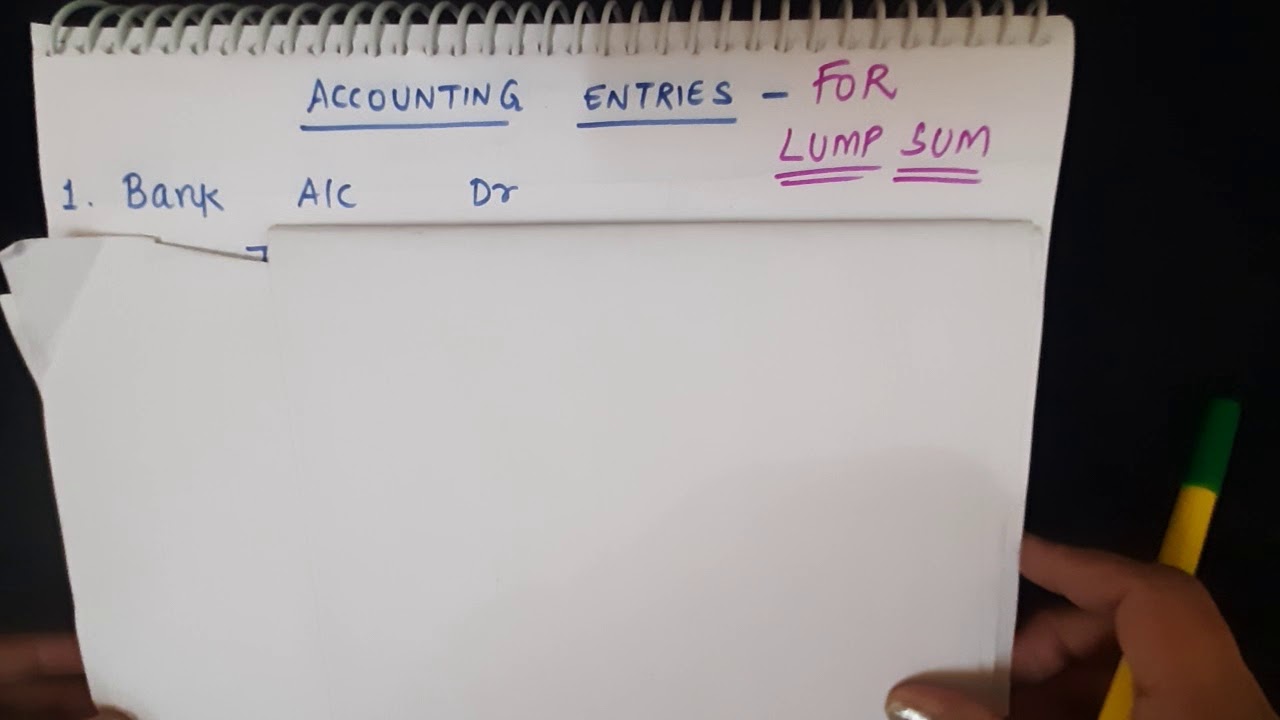 ACCOUNTING ENTRIES - FOR
LUMP SUM
1. Bank A/C Dr